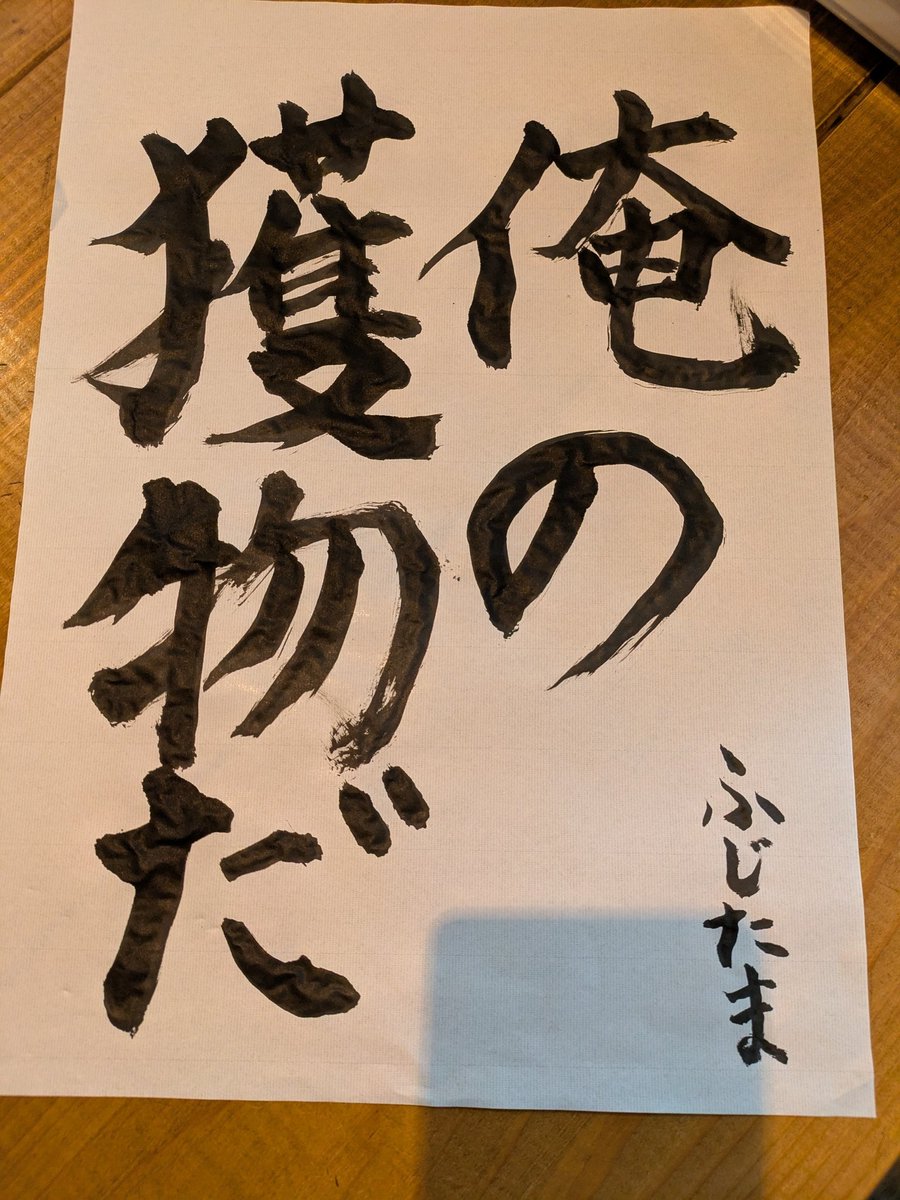 俺の
獲物だ
ふじたま